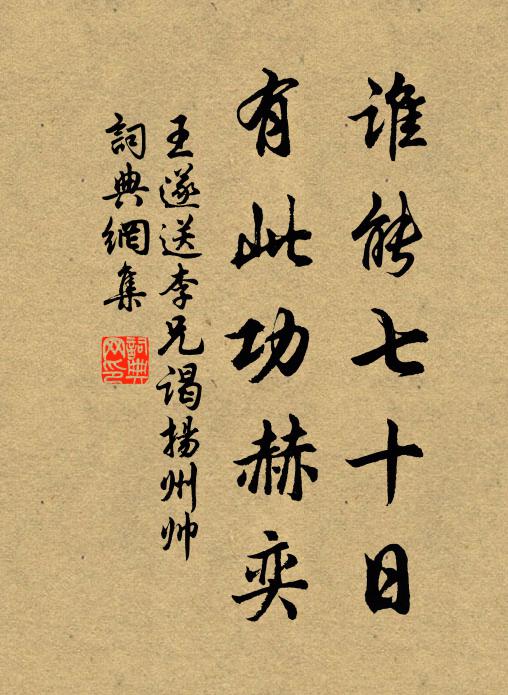 誰能七十日
有此功赫奕
王遂送李兄謁揚州帅
詞典網集
詞典网印